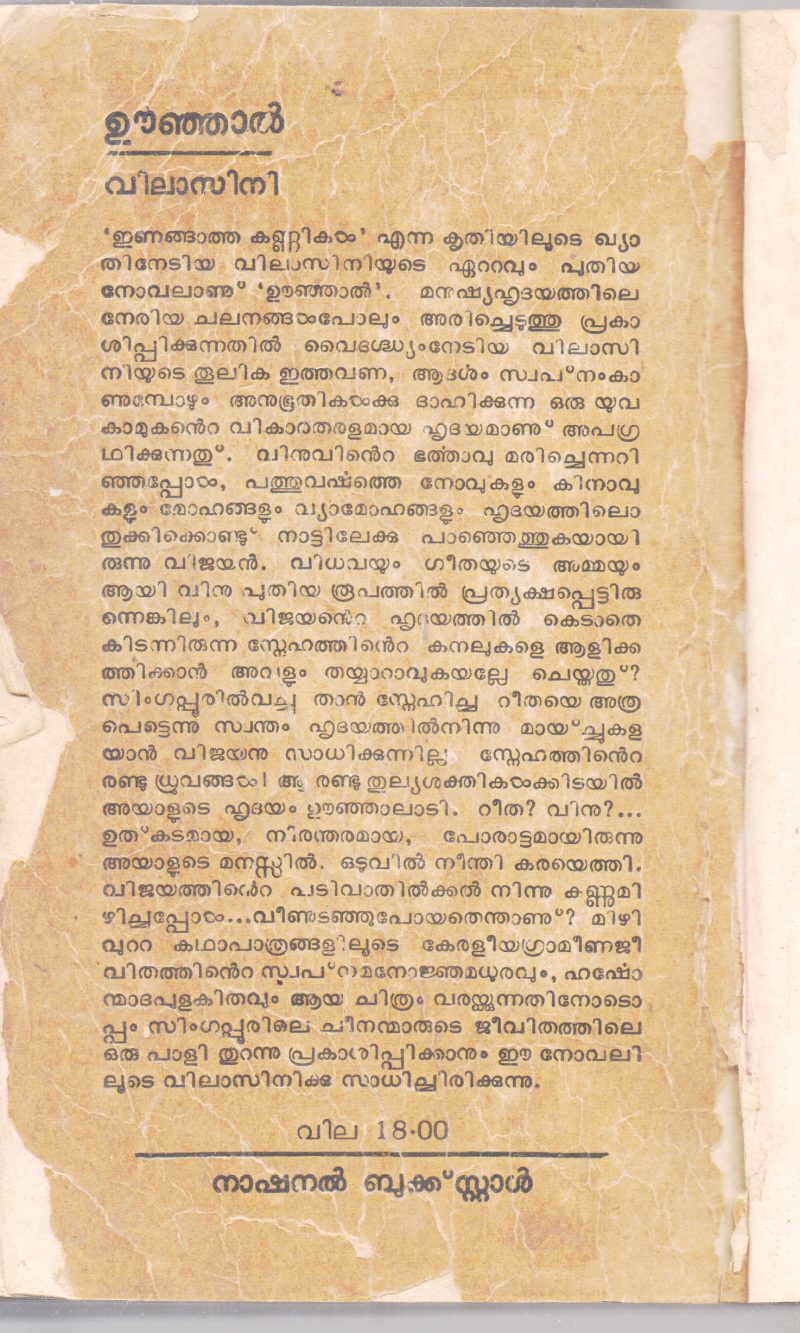 ഊഞ്ഞാൽ
വിലാസിനി
‘ഇണങ്ങാത്ത കണ്ണികൾ’ എന്ന കൃതിയിലൂടെ ഖ്യാ
തിനേടിയ വിലാസിനിയുടെ ഏററവും പുതിയ
നോവലാണു് ‘ഊഞ്ഞാൽ’. മനുഷ്യഹൃദയത്തിലെ
നേരിയ ചലനങ്ങൾപോലും അരിച്ചെടുത്തു പ്രകാ
ശിപ്പിക്കുന്നതിൽ വൈദഗ്ദ്ധ്യംനേടിയ വിലാസി
നിയുടെ തൂലിക ഇത്തവണ, ആദർശം സ്വപ്നംകാ
ണുമ്പോഴും അനുഭൂതികൾക്കു ദാഹിക്കുന്ന ഒരു യുവ
കാമുകൻെറ വികാരതരളമായ ഹൃദയമാണു് അപഗ്ര
ഥിക്കുന്നതു്. വിനുവിൻെറ ഭർത്താവു മരിച്ചെന്നറി
ഞ്ഞപ്പോൾ, പത്തുവർഷത്തെ നോവുകളും കിനാവു
കളും മോഹങ്ങളും വ്യാമോഹങ്ങളും ഹൃദയത്തിലൊ
തുക്കിക്കൊണ്ടു് നാട്ടിലേക്കു പാഞ്ഞെത്തുകയായി
രുന്നു വിജയൻ. വിധവയും ഗീതയുടെ അമ്മയും
ആയി വിനു പുതിയ രൂപത്തിൽ പ്രത്യക്ഷപ്പെട്ടിരു
ന്നെങ്കിലും, വിജയൻെറ ഹൃദയത്തിൽ കെടാതെ
കിടന്നിരുന്ന സ്നേഹത്തിൻെറ കനലുകളെ ആളിക്ക
ത്തിക്കാൻ അവളും തയ്യാറാവുകയല്ലേ ചെയ്തതു്?
സിംഗപ്പൂരിൽവച്ചു താൻ സ്നേഹിച്ച റീതയെ അത്ര
പെട്ടെന്നു സ്വന്തം ഹൃദയത്തിൽനിന്നു മായ്ച്ചുകള
യാൻ വിജയനു സാധിക്കുന്നില്ല; സ്നേഹത്തിൻെറ
രണ്ടു ധ്രുവങ്ങൾ! ആ രണ്ടു തുല്യശക്തികൾക്കിടയിൽ
അയാളുടെ ഹൃദയം ഊഞ്ഞാലാടി. റീത? വിനു?...
ഉത്കടമായ, നിരന്തരമായ, പോരാട്ടമായിരുന്നു
അയാളുടെ മനസ്സിൽ. ഒടുവിൽ നീന്തി കരയെത്തി.
വിജയത്തിൻെറ പടിവാതിൽക്കൽ നിന്നു കണ്ണുമി
ഴിച്ചപ്പോൾ...വീണുടഞ്ഞുപോയതെന്താണു്? മിഴി
വുററ കഥാപാത്രങ്ങളിലൂടെ കേരളീയഗ്രാമീണജീ
വിതത്തിൻെറ സ്വപ്നമനോജ്ഞമധുരവും, ഹർഷോ
ന്മാദപുളകിതവും ആയ ചിത്രം വരയ്ക്കുന്നതിനോടൊ
പ്പം സിംഗപ്പൂരിലെ ചീനന്മാരുടെ ജീവിതത്തിലെ
ഒരു പാളി തുറന്നു പ്രകാശിപ്പിക്കാനും ഈ നോവലി
ലൂടെ വിലാസിനിക്കു സാധിച്ചിരിക്കുന്നു.
വില 18·00
നാഷനൽ ബുക്ക്‌സ്റ്റാൾ